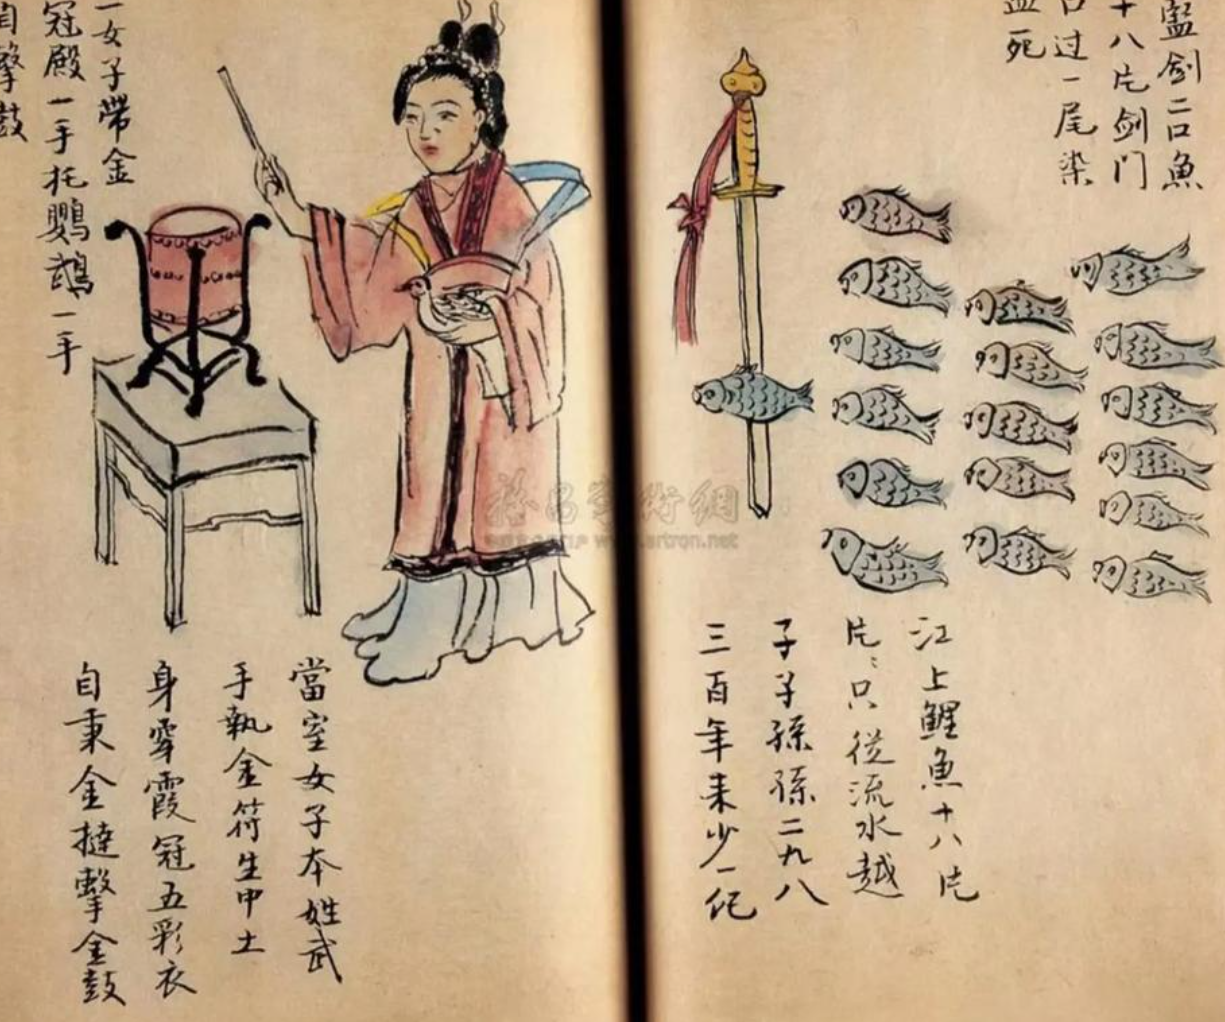 藍劍二口魚
十八片劍门
口过一尾染
血死
江上鯉魚十八片
片〻只從流水越
子子孫孫二九八
三百年来少一
一女子帶金
冠殿一手托鸚鵡一手
自擊鼓
當室女子本姓武
手執金符生甲土
身穿霞冠五彩衣
自秉金撻擊金鼓
www.artron.net